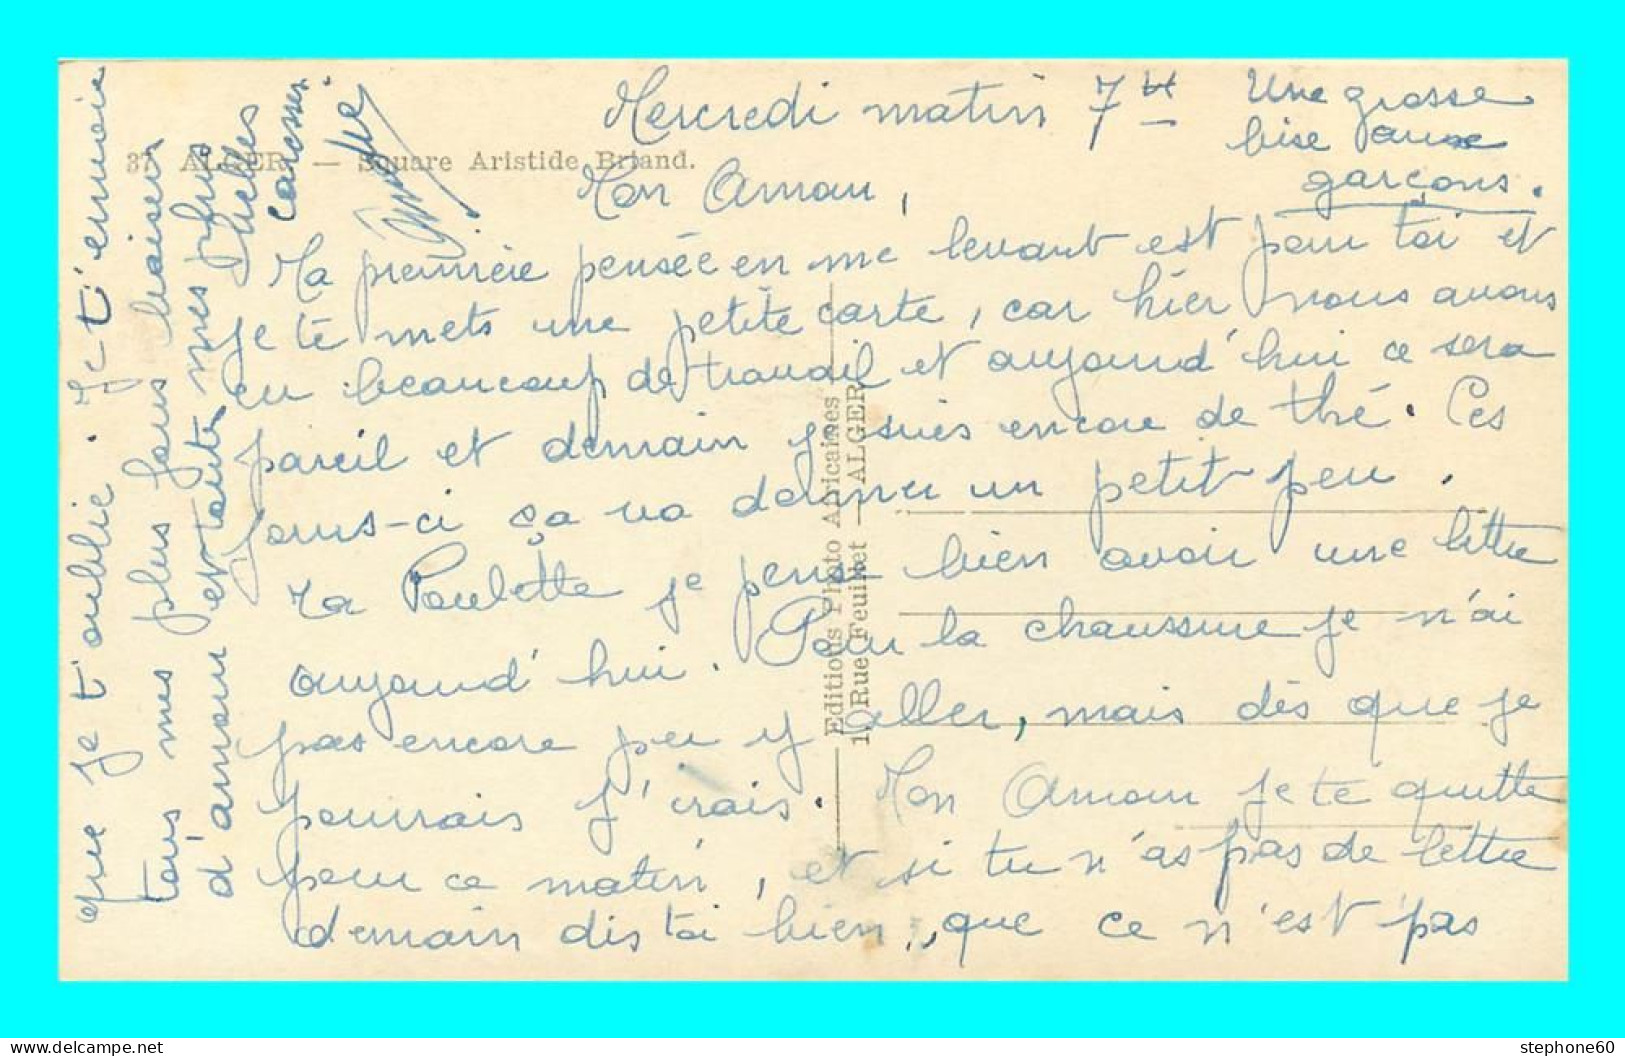 Mercredi matin 7 H
Une grosse
bise aux
garçons.
37 ALGER. — Square Aristide Briand.
Mon Amour,
Ma première pensée en me levant est pour toi et
je te mets une petite carte, car hier nous avons
eu beaucoup de travail et aujourd'hui ce sera
pareil et demain je suis encore de thé. Ces
jours-ci ça va donner un petit peu.
Ma Paulette je pense bien avoir une lettre
aujourd'hui. Pour la chaussure je n'ai
pas encore peu y aller, mais dès que je
pourrais j'irais. Mon Amour je te quitte
pour ce matin, et si tu n'as pas de lettre
demain dis toi bien, que ce n'est pas
que je t'oublie. Je t'envoie
tous mes plus fous baisers
d'amour et toutes mes plus
belles
caresses.
Editions Photo Africaines
1, Rue Feuillet — ALGER
stephone60